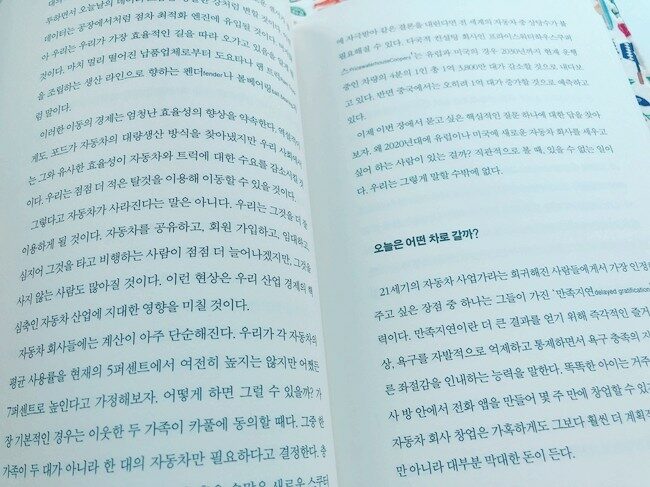 두하면서 오늘날의
데이터는 공장에서처럼 점차 최적화 엔진에 유입될 것이다.
아 우리는 우리가 가장 효율적인 길을 따라 오가고 있음을 알게
것이다. 마치 멀리 떨어진 납품업체로부터 도요타나 램 트럭
을 조립하는 생산 라인으로 향하는 펜더fender나 볼베어링
럼 말이다.
이러한 이동의 경제는 엄청난 효율성의 향상을 약속한다. 역설적
게도, 포드가 자동차의 대량생산 방식을 찾아냈지만 우리 사회에서
는 그와 유사한 효율성이 자동차와 트럭에 대한 수요를 감소시킬 것
이다. 우리는 점점 더 적은 탈것을 이용해 이동할 수 있을 것이다.
그렇다고 자동차가 사라진다는 말은 아니다. 우리는 그것을 더
이용하게 될 것이다. 자동차를 공유하고, 회원 가입하고, 임대하고,
심지어 그것을 타고 비행하는 사람이 점점 더 늘어나겠지만, 그것을
사지 않는 사람도 많아질 것이다. 이런 현상은 우리 산업 경제의 핵
심축인 자동차 산업에 지대한 영향을 미칠 것이다.
자동차 회사들에는 계산이 아주 단순해진다. 우리가 각 자동차의
평균 사용률을 현재의 5퍼센트에서 여전히 높지는 않지만 어쨌든
7퍼센트로 높인다고 가정해보자. 어떻게 하면 그럴 수 있을까? 가
장 기본적인 경우는 이웃한 두 가족이 카풀에 동의할 때다. 그중 한
가족이 두 대가 아니라 한 대의 자동차만 필요하다고 결정한다.
수많은 새로운
에 자극받아 같은 결론을 내린다면 전 세계의 자동차 중 상당수가 불
필요해질 수 있다. 다국적 컨설팅 회사인 프라이스워터하우스쿠퍼
스PricewaterhouseCoopers는 유럽과 미국의 경우 2030년까지 현재 운행
중인 차량의 4분의 1인 총 1억 3,800만 대가 감소할 것으로 내다보
고 있다. 반면 중국에서는 오히려 1억 대가 증가할 것으로 예측하고
있다.
이제 이번 장에서 묻고 싶은 핵심적인 질문 하나에 대한 답을 찾아
보자. 왜 2020년대에 유럽이나 미국에 새로운 자동차 회사를 세우고
싶어 하는 사람이 있는 걸까? 직관적으로 볼 때, 있을 수 없는 일이
다. 우리는 그렇게 말할 수밖에 없다.
오늘은 어떤 차로 갈까?
21세기의 자동차 사업가라는 희귀해진 사람들에게서 가장 인정
주고 싶은 장점 중 하나는 그들이 가진 ‘만족지연delayed gratification
력이다. 만족지연이란 더 큰 결과를 얻기 위해 즉각적인 즐거
상, 욕구를 자발적으로 억제하고 통제하면서 욕구 충족의 지
른 좌절감을 인내하는 능력을 말한다. 똑똑한 아이는 거주
사 방 안에서 전화 앱을 만들어 몇 주 만에 창업할 수 있
자동차 회사 창업은 가혹하게도 그보다 훨씬 더 계획적
만 아니라 대부분 막대한 돈이 든다.